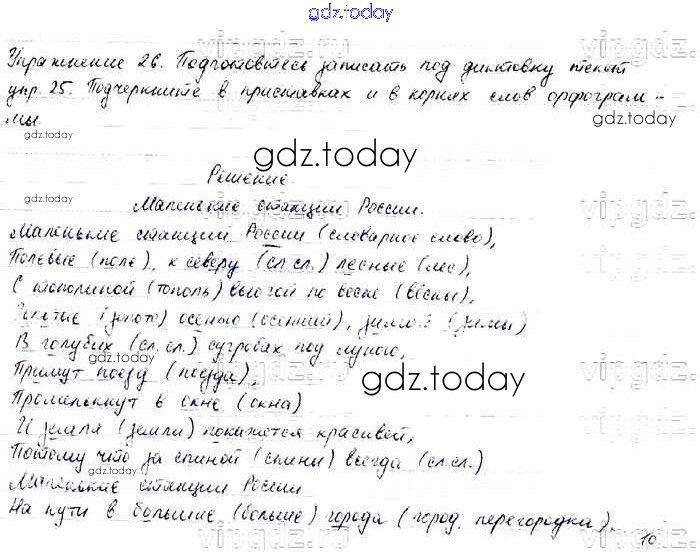 gdz.today
Упражнение 26. Подготовьтесь записать под диктовку текст
упр. 25. Подчеркните в приставках и в корнях слов орфограм-
мы
gdz.today
gdz.today
vipgdz.ru
Решение.
Маленькие станции России.
Маленькие станции России (словарное слово),
Полевые (поле), к северу (сл.сл.) лесные (лес),
С тополиной (тополь) вьюгой по весне (вёсны),
Золотые (золото) осенью (осенний), зимой (зимы)
В голубых (сл.сл.) сугробах под луною,
gdz.today
Примут поезд (поезда),
gdz.today
Промелькнут в окне (окна)
И земля (земли) покажется красивей,
Потому что за спиной (спины) всегда (сл.сл.)
gdz.today
Маленькие станции России
На пути в большие (больше) города (город, перегородка).
10